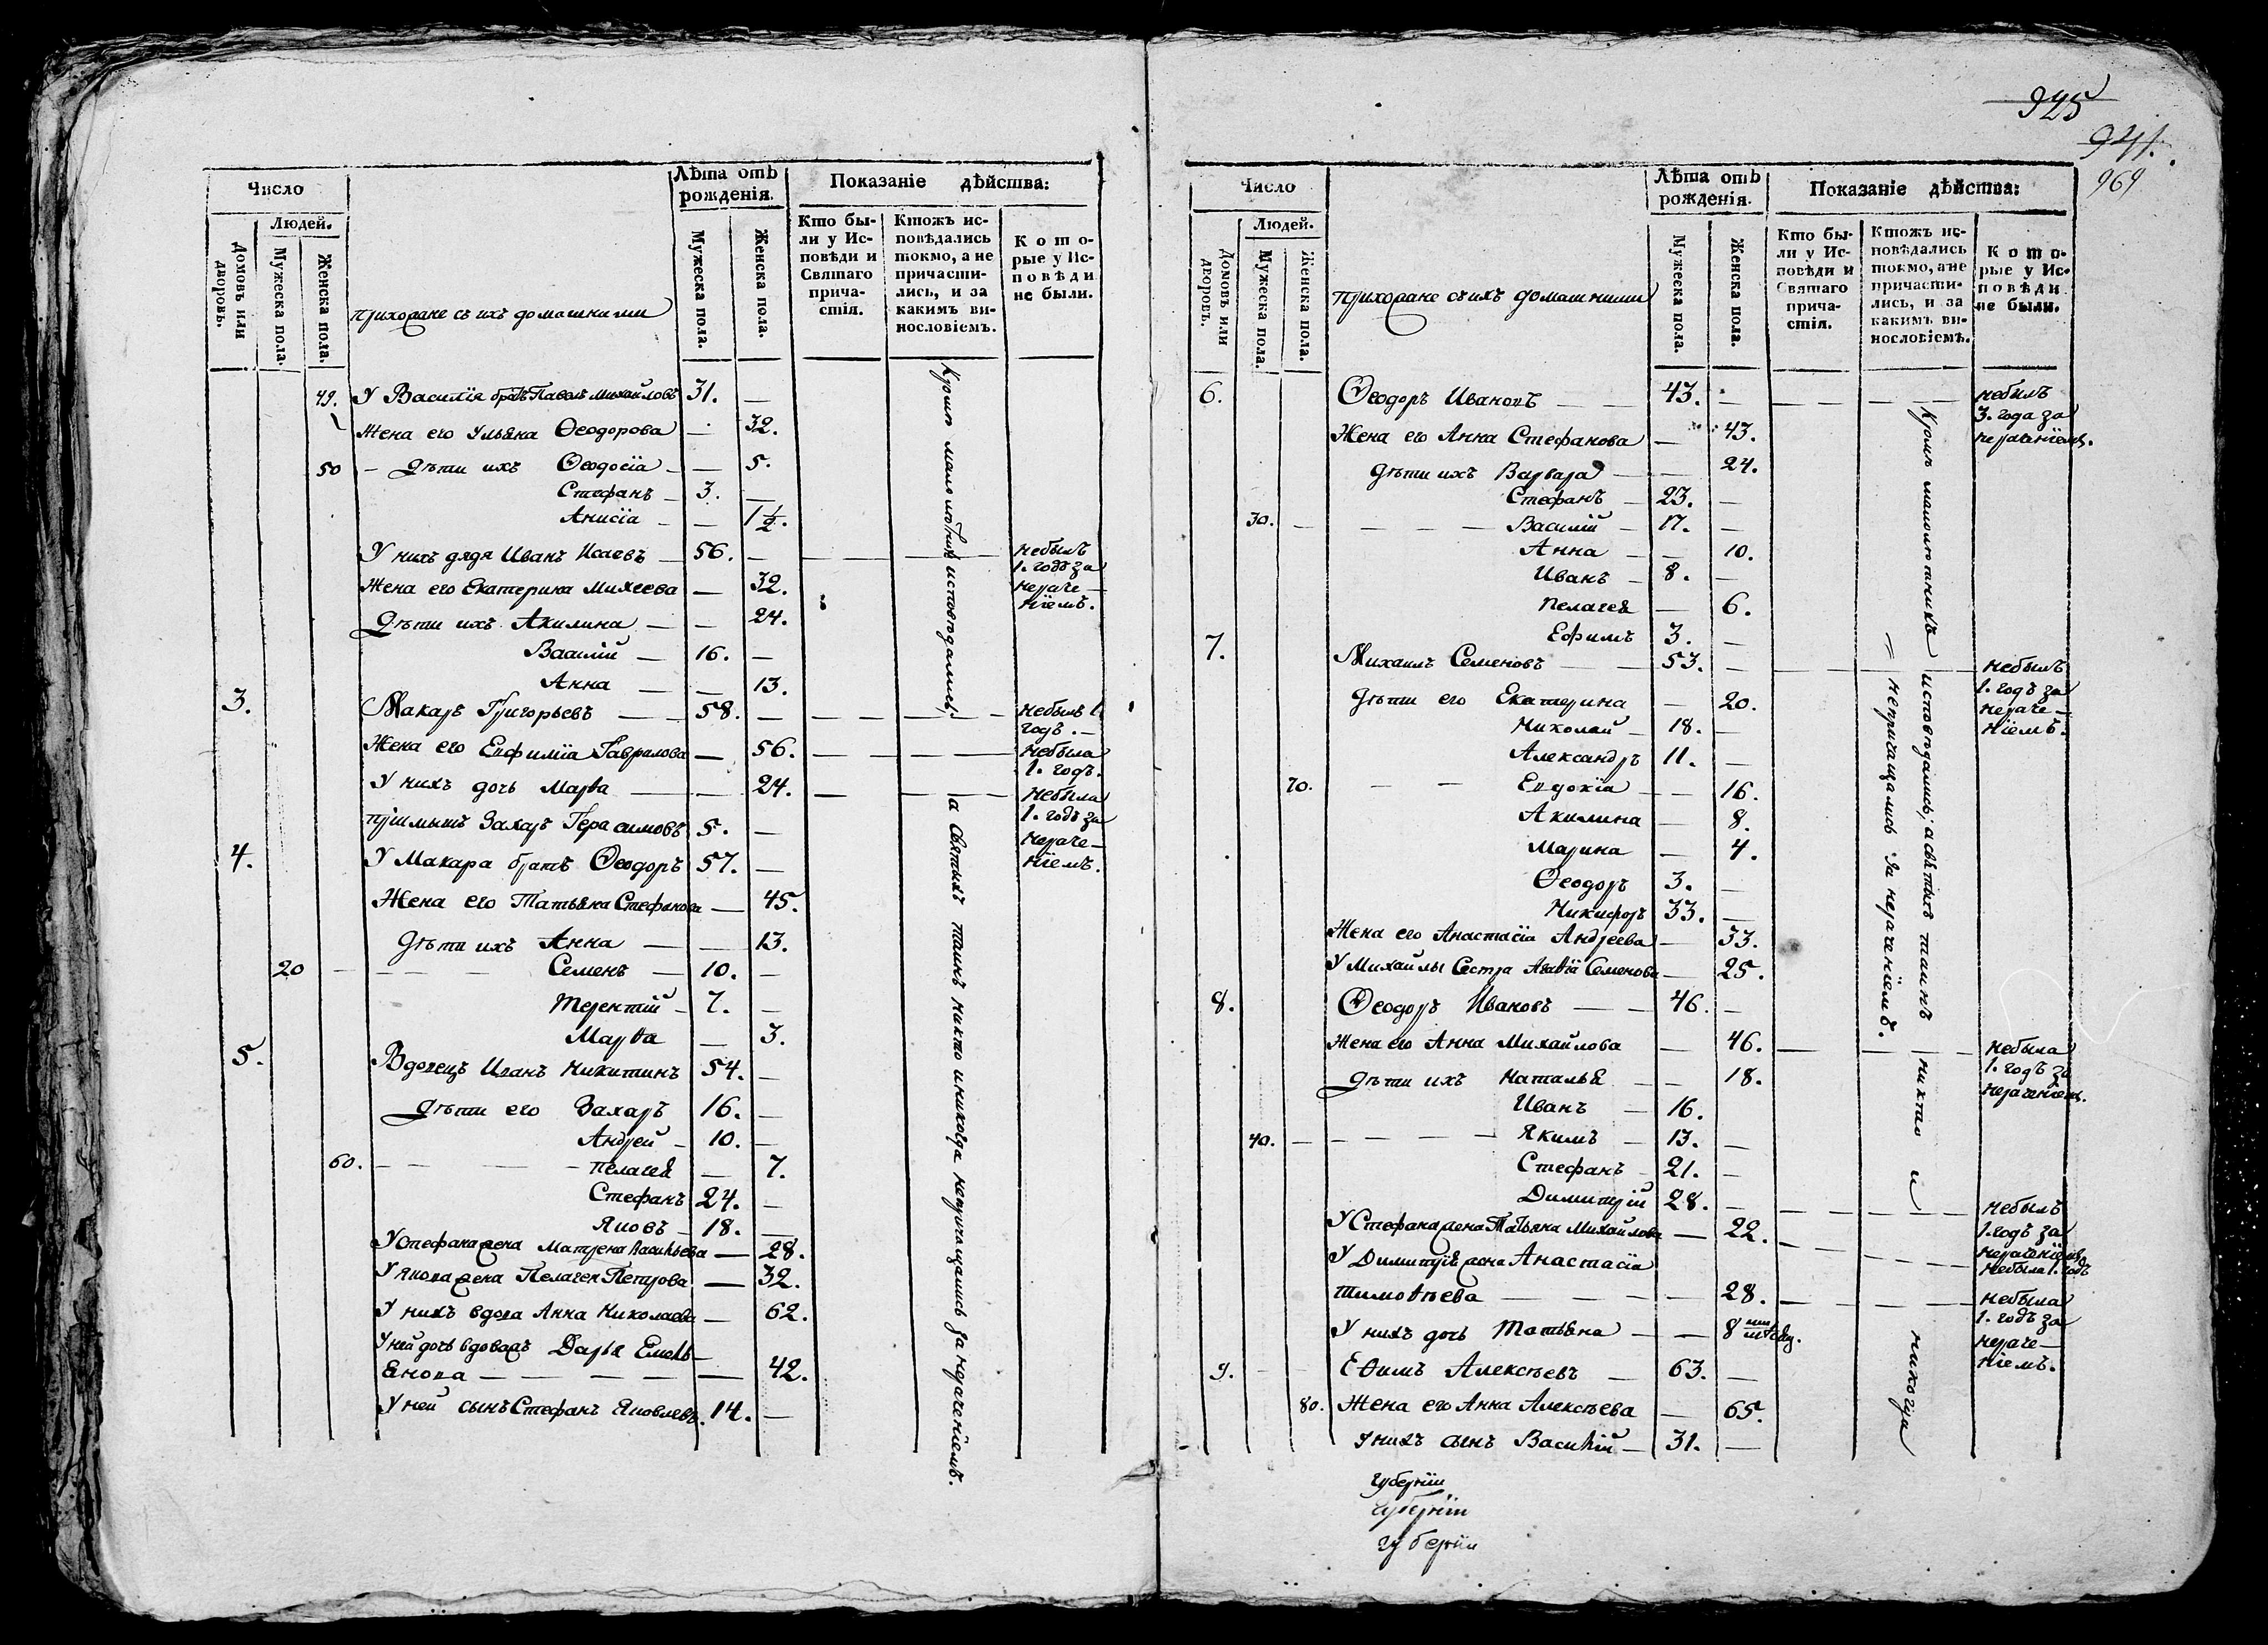 Число
Людей.
Домовъ или дворовъ.
Мужеска пола.
Женска пола.
прихожане съ ихъ домашними
Лѣта отъ рожденія.
Мужеска пола.
Женска пола.
Показаніе дѣйства:
Кто бы-
ли у Ис-
повѣди и
Святаго
прича-
стія.
Ктожъ ис-
повѣдались
токмо, а не
причасти-
лись, и за
какимъ ви-
нословіемъ.
К о т о-
рые у Ис-
п о в ѣ д и
не были.
49. У Василія братъ Павелъ Михайловъ 31. —
Жена его Ульяна Ѳеодорова — 32.
50 — Дѣти ихъ Ѳеодосіа — — 5.
Стефанъ — 3. —
Анисіа — — 1 1/2.
У нихъ дядя Иванъ Исаевъ — 56. — — — небылъ
1. годъ за
нераче—
ніемъ.
Жена его Екатерина Михеева — 32.
Дѣти ихъ Акилина — — 24.
Василій — 16. —
Анна — — 13.
3. Макаръ Григорьевъ — — 58. — — — — небылъ 1.
годъ. —
Жена его Евфиміа Гаврилова — 56. — — — небыла
1. годъ.
У нихъ дочь Марѳа — — 24. — — — небыла
1. годъ за
нераче—
ніемъ.
пріимышъ Захаръ Герасимовъ 5. —
4. У Макара братъ Ѳеодоръ 57. —
Жена его Татьяна Стефанова — 45.
Дѣти ихъ Анна — — 13.
20 — — — — Семенъ — 10. —
Терентій — 7. —
Марѳа — 3.
5. Вдовецъ Иванъ Никитинъ 54. —
Дѣти его Захаръ 16. —
Андрей — 10. —
60. — — — — Пелагея — 7.
Стефанъ 24. —
Яковъ — 18. —
У Стефана жена Матрена Васильева — 28.
У Якова жена Пелагея Петрова — 32.
У нихъ вдова Анна Николаева — 62.
У ней дочь вдовая Дарья Емель—
янова — — — — — 42.
У ней сынъ Стефанъ Яковлевъ. 14. —
Кромѣ малолѣтнихъ исповѣдались; а Святыхъ таинъ никто и никогда непричащались за нераченіемъ.
925
941.
969
Число
Людей.
Домовъ или дворовъ.
Мужеска пола.
Женска пола.
прихожане съ ихъ домашними
Лѣта отъ рожденія.
Мужеска пола.
Женска пола.
Показаніе дѣйства:
Кто бы-
ли у Ис-
повѣди и
Святаго
прича-
стія.
Ктожъ ис-
повѣдались
токмо, а не
причасти-
лись, и за
какимъ ви-
нословіемъ.
К о т о-
рые у Ис-
п о в ѣ д и
не были.
6. Ѳеодоръ Ивановъ — — 43. — — — — небылъ
3. года за
нераченіемъ.
Жена его Анна Стефанова — 43.
Дѣти ихъ Варвара — — 24.
Стефанъ — 23. —
30. — — — — Василій — 17. —
Анна — — 10.
Иванъ — 8. —
Пелагея — 6.
Ефимъ 3. —
7. Михаилъ Семеновъ — — 53. — — — небылъ
1. годъ за
нераче—
ніемъ.
Дѣти его Екатерина — 20.
Николай — 18. —
Александръ 11. —
70. — — Евдокіа — — 16.
Акилина — 8.
Марина — 4.
Ѳеодоръ 3. —
Никифоръ 33. —
Жена его Анастасіа Андреева — 33.
У Михайлы Сестра Агаѳіа Семенова — 25.
8. Ѳеодоръ Ивановъ — — 46. —
Жена его Анна Михайлова — 46. — — — небыла
1. годъ за
нераченіемъ.
Дѣти ихъ Наталья — — 18.
Иванъ — 16.
40. — — — — Якимъ — 13. —
Стефанъ — 21. —
Димитрій 28. — — — — небылъ
1. годъ за
нераченіемъ.
У Стефана жена Татьяна Михайлова — 22. — — — небыла 1. годъ
У Димитрія жена Анастасіа
Тимоѳеева — — — — 28. — — — небыла
1. годъ за
нераче—
ніемъ.
У нихъ дочь Татьяна — — 8
9. — Еѳимъ Алексѣевъ — 63. —
80. Жена его Анна Алексѣева — 65.
У нихъ сынъ Василій — 31. —
Кромѣ малолѣтнихъ исповѣдались; а святыхъ таинъ никто и никогда
= непричащались за нераченіемъ.
губерніи
губерніи
губерніи